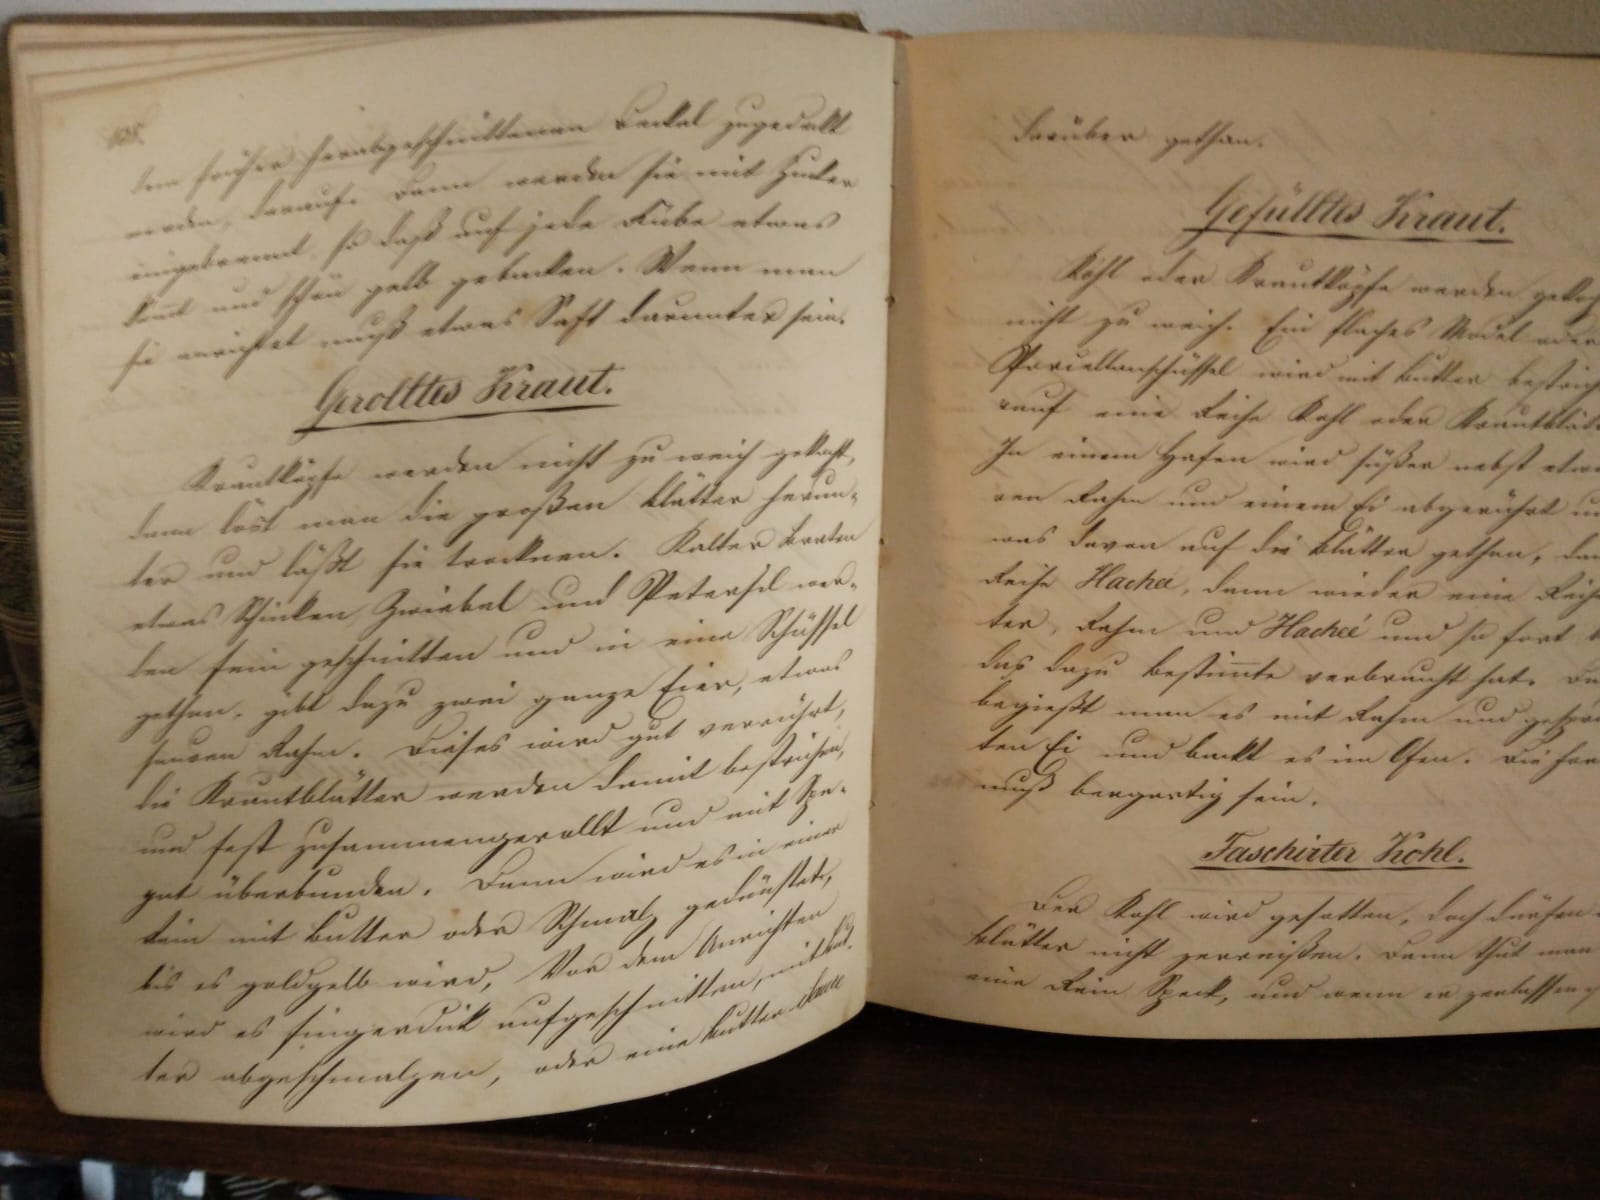 dem früher herabgeschnittenen Deckel zugedeckt
werden, darauf. Dann werden sie mit Zucker
eingebrennt, so daß auf jede Rübe etwas
kom̅t und schön gelb gebacken. Wenn man
sie anrichtet muß etwas Saft darunter sein.
Gerolltes Kraut.
Krautköpfe werden nicht zu weich gekocht,
dann löst man die großen Blätter herun-
ter und läßt sie trocknen. Kalter Braten
etwas Schinken, Zwiebel und Petersil wer-
den fein geschnitten und in eine Schüssel
gethan, gibt dazu zwei ganze Eier, etwas
sauren Rahm. Dieses wird gut verrührt,
die Krautblätter werden damit bestrichen,
und fest zusammengerollt und mit Spa-
gat überbunden. Dann wird es in einer
Rein mit Butter oder Schmalz gedünstet,
bis es goldgelb wird, Vor dem Anrichten
wird es fingerdick aufgeschnitten, mit But-
ter abgeschmalzen, oder eine Butter Sauce
darüber gethan.
Gefülltes Kraut.
Kohl oder Krautköpfe werden gekoc
nicht zu weich. Ein flaches Model oder
Porcellanschüssel wird mit Butter bestrich
rauf eine Reihe Kohl oder Krautblät
In einem Hafen wird süßer nebst etwa
ren Rahm und einem Ei abgerührt un
was davon auf die Blätter gethan, da
Reihe Hacheé, dann wieder eine Reihe
ter, Rahm und Hacheé und so fort b
das dazu bestim̅te verbraucht hat. Da
begießt man es mit Rahm und gespru
ten Ei und backt es im Ofen. Die For
muß bergartig sein.
Faschirter Kohl.
Der Kohl wird gesotten, doch dürfen
Blätter nicht zerreißen. Dann thut man
eine Rein Speck, und wenn er zerlassen